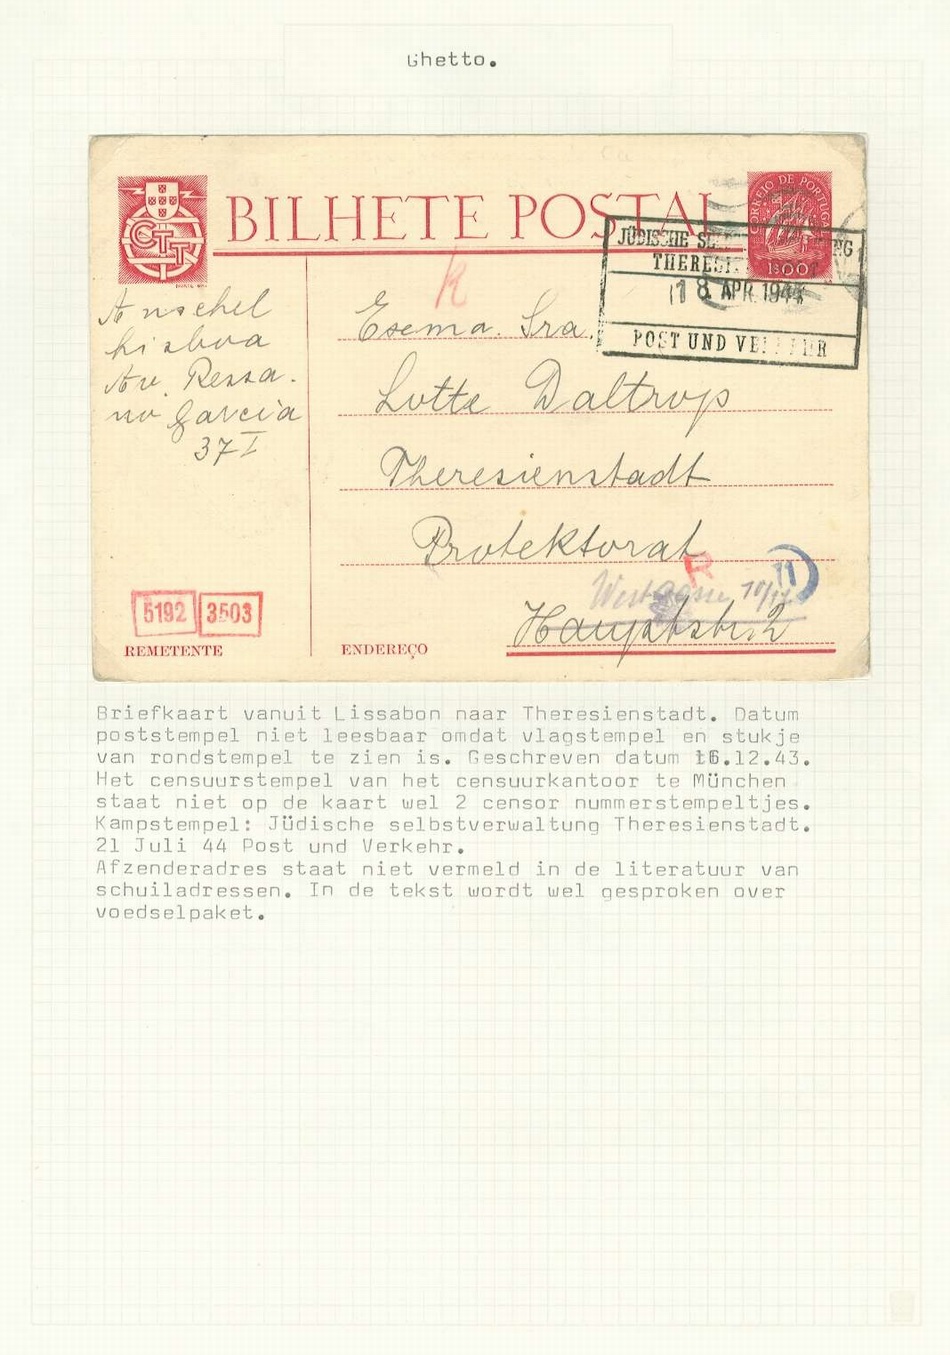 Ghetto.
BILHETE POSTAL
CORREIO DE PORTUGAL
1$00
CTT
JÜDISCHE
THERESI
18. APR. 1944
POST UND VERKEHR
R
Anschel
Lisboa
Av. Ressa-
no Garcia
37 I
Exema. Sra.
Lotte Daltrop
Theresienstadt
Protektorat
R
11
Westgasse
Hauptstr. 2
5192 3503
REMETENTE
ENDEREÇO
Briefkaart vanuit Lissabon naar Theresienstadt. Datum
poststempel niet leesbaar omdat vlagstempel en stukje
van rondstempel te zien is. Geschreven datum 16.12.43.
Het censuurstempel van het censuurkantoor te München
staat niet op de kaart wel 2 censor nummerstempeltjes.
Kampstempel: Jüdische selbstverwaltung Theresienstadt.
21 Juli 44 Post und Verkehr.
Afzenderadres staat niet vermeld in de literatuur van
schuiladressen. In de tekst wordt wel gesproken over
voedselpaket.